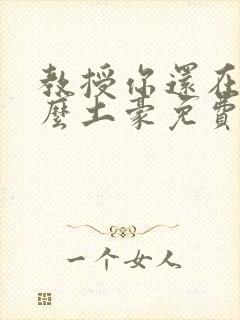 教授你還在
麼土豪免費
一个女人